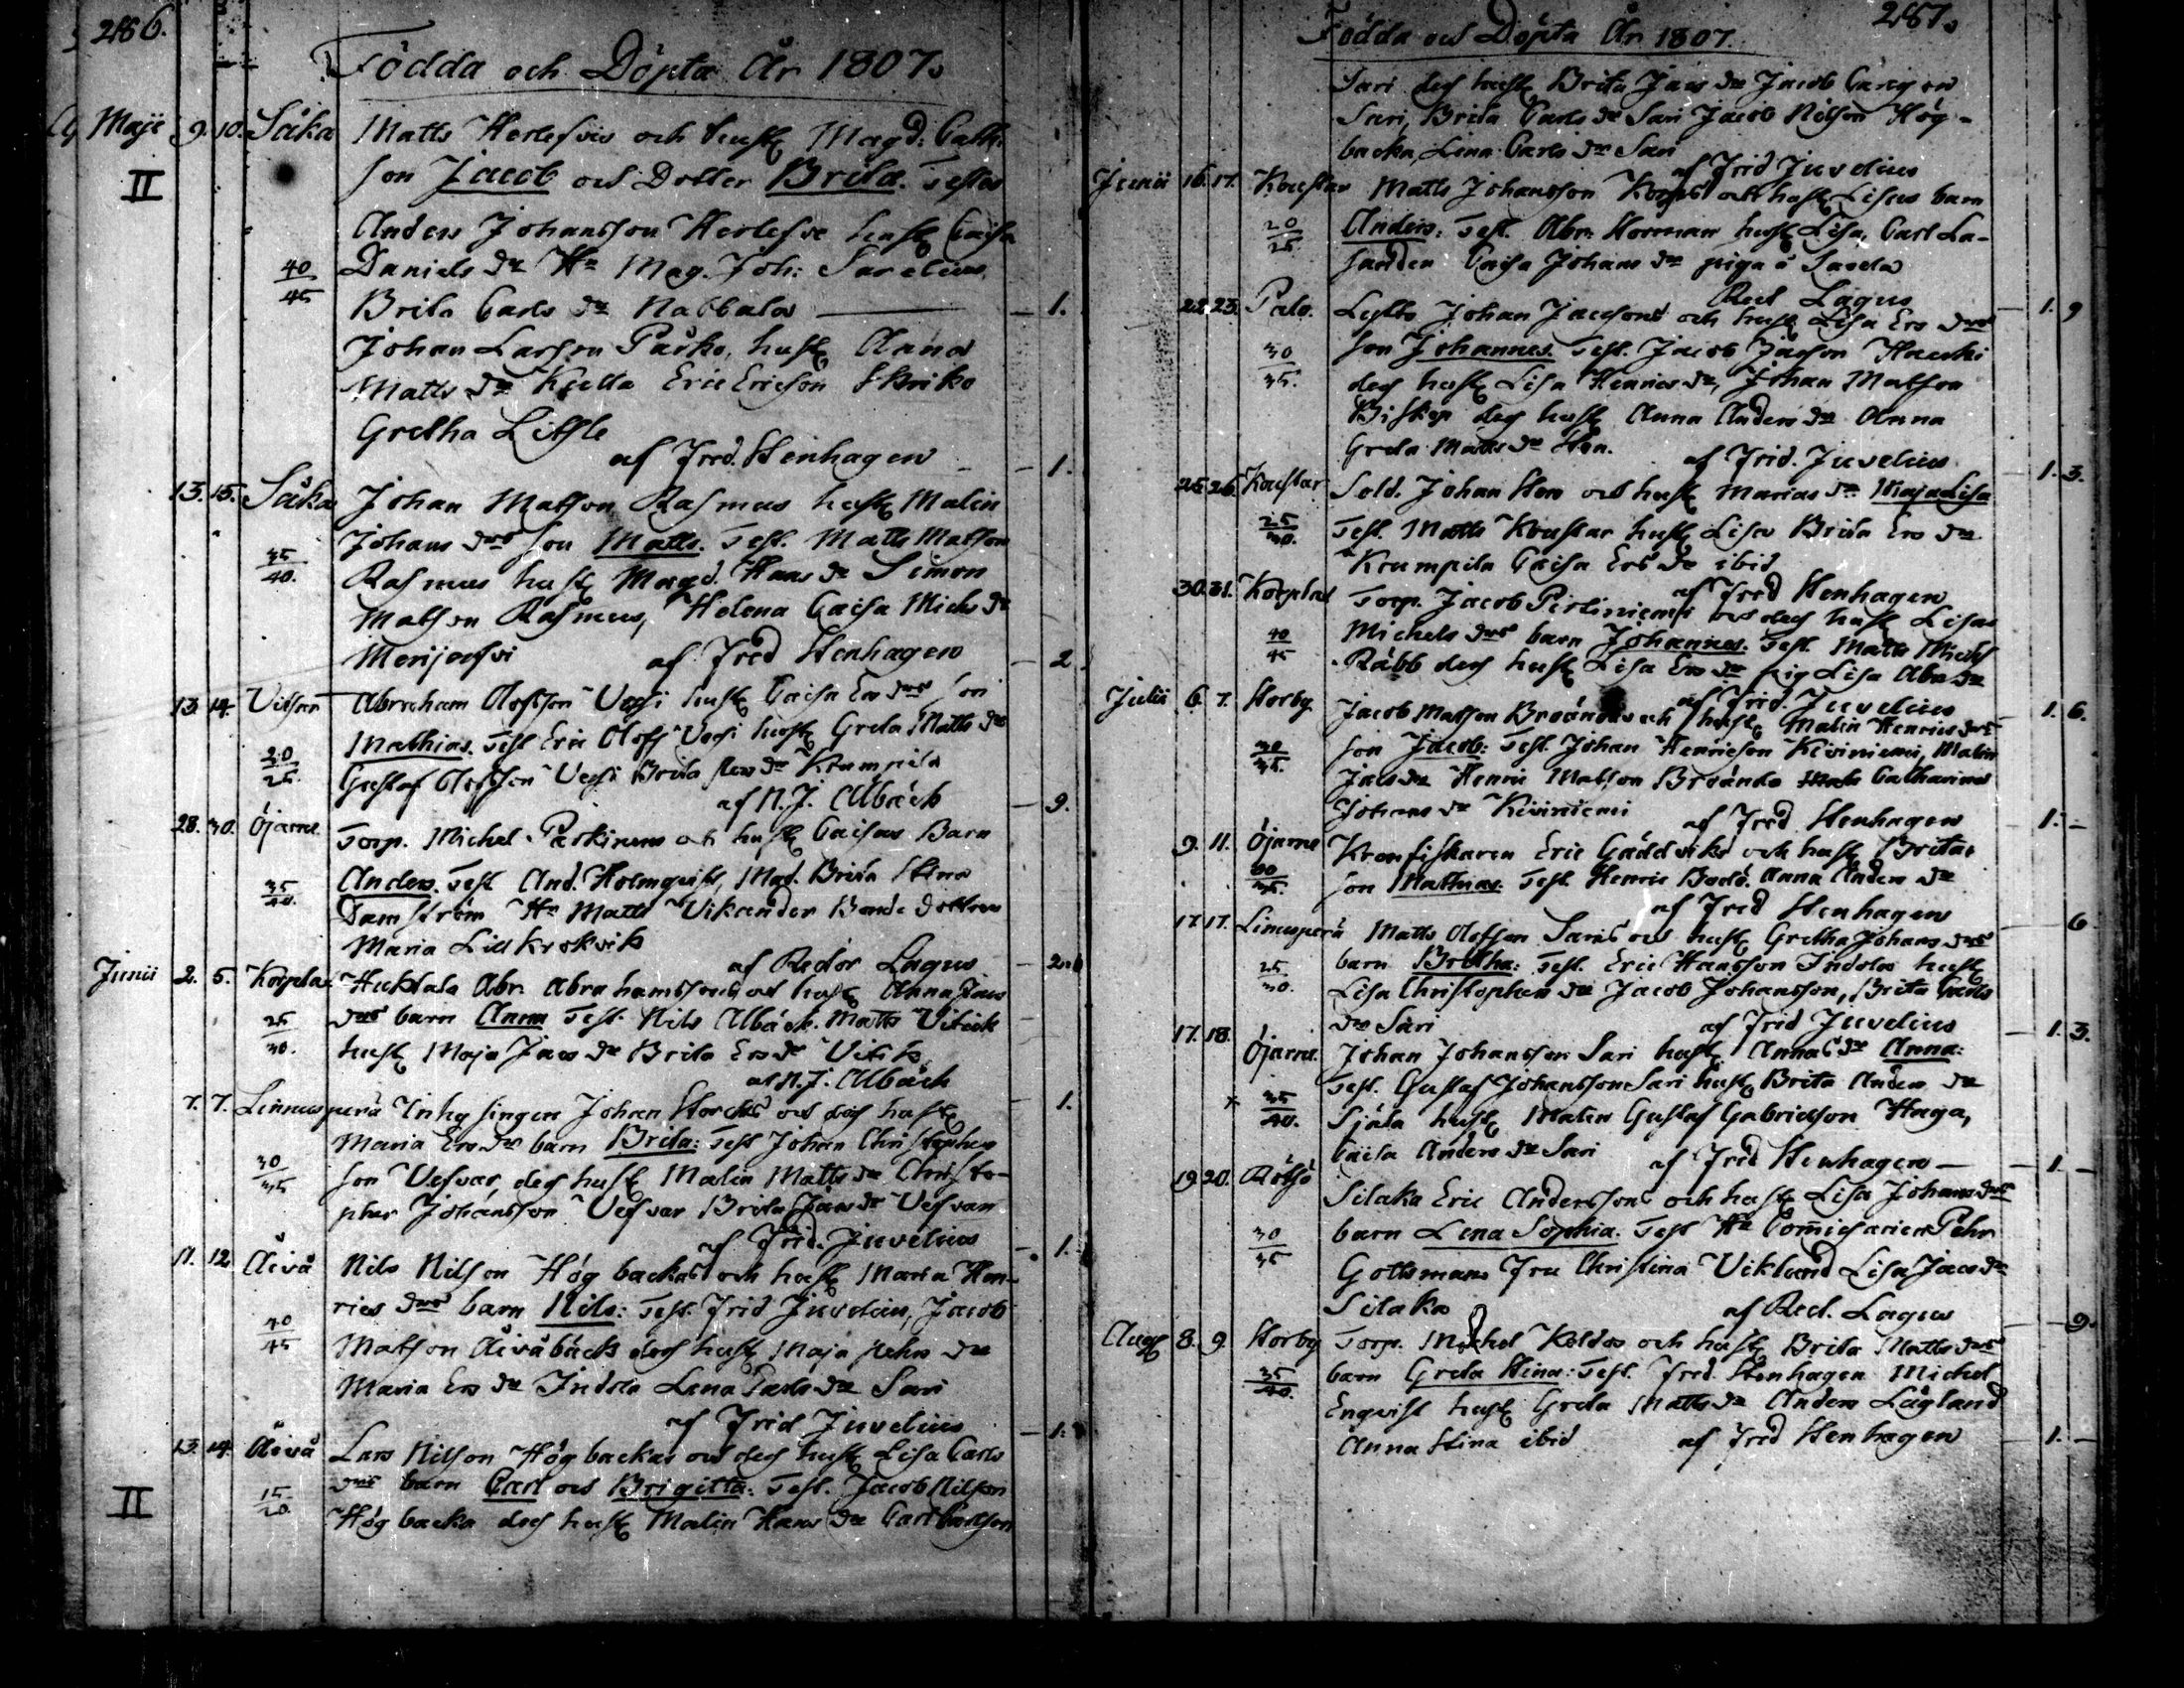 286.
Födda och Döpta År 1807.
Maji 9. 10. Såka Matts Herlefvis och hust Magd: Cath:
II
son Jacob och Dotter Brita. Testes
Anders Johansson Herlefvi hust Caisa
40/45 Daniels dr Hr Mag. Joh: Sarelius,
Brita Carls dr Nabbala — 1.
Johan Larsson Pårko, hust Anna
Matts dr Kjella Eric Ericson Skriko
Gretha Litsle
af Fred. Stenhagen — 1.
13. 15. Såka Johan Matsson Rasmus hust Malin
Johans drs son Matts. Test. Matts Matsson
35/40. Rasmus hust Magd. Hans dr Simon
Matsson Rasmus, Helena Caisa Michs dr
Merijerfvi af Fred Stenhagen — 2
13. 14. Vitsar Abraham Olofsson Vessi hust Caisa Ers drs son
Mathias. Test Eric Olofs Vessi hust Greta Matts dr
20/25 Gustaf Olofsson Vessi Brita dr Krumpila
af N. J. Albäck — 9.
28. 30. Öjarne Torp. Michel Parkinens och hust Caisas Barn
Anders. Test And. Holmqvist, Mad. Brita Stina
35/40. Damström Hr Matts Vikander Bonde dottren
Maria Lill Krokvik
af Redor Lagus — 2.
Junii 2. 5. Korplax Huktala Abr. Abrahamssons och hust Anna Jacs
25/30. drs barn Anna Test. Nils Albäck. Matts Vitick
hust Maja Jacs dr Brita Ers dr Vitik
af N. J. Albäck
7. 7. Linnusperä Inhysingen Johan Storcks och dess hust — 1.
Maria Ers drs barn Brita: Test Johan Christopher
30/35 son Vesvar, dess hust Malin Matts dr Christo-
pher Johansson Vesvar Brita Jacs dr Vesvar
af Frid. Juvelius — 1.
11. 12. Åivå Nils Nilson Högbackas och hust Maria Hen-
rics drs barn Nils: Test. Frid Juvelius, Jacob
40/45 Matson Åivåbäck dess hust Maja Pehrs dr
Maria Ers dr Indola Lena Carls dr Sari
af Frid Juvelius — 1.
13. 14. Åivå Lars Nilson Högbackas och dess hust Lisa Carls
II 15/20. drs barn Carl och Brigitta: Test. Jacob Nilson
Högbacka dess hust Malin Hans dr Carl Carlson
287.
Födda och Döpta År 1807.
Sari dess hust Brita Jacs dr Jacob
Sari, Brita Carls dr Sari Jacob Nilson Hög-
backa, Lena Carls dr Sari
af Frid Juvelius
Junii 16. 17. Koustar Matts Johansson Korps och hust Lisas barn
20/25. Anders: Test. Abr. Norman hust Lisa, Carl La-
sanden Caisa Johans dr piga å Sarela
Rect Lagus — 1. 9
22. 23. Palo. Lytts Johan Jacssons och hust Lisa Ers drs
30/35. son Johannes. Test. Jacob Jacson Hauki
dess hust Lisa Henrics dr, Johan Matson
Biskop dess hust Anna Anders dr Anna
Greta Matts dr Sten.
af Frid. Juvelius — 1. 3.
25. 26. Koustar Sold. Johan Stens och hust Marias dr Maja Lisa
25/30. Test. Matts Koustar hust Lisa Brita Ers dr
Krumpila Caisa Ers dr ibid
af Fred Stenhagen
30. 31. Korplax Torp. Jacob Pistiniemi och dess hust Lisas
40/45 Michels drs barn Johannes. Test. Matts Michs
Räbb dess hust Lisa Ers dr pig Lisa Abr. dr
af Frid. Juvelius — 1. 6.
Julii 6. 7. Storby Jacob Matson Broändas och hust Malin Henrics drs
30/35. son Jacob: Test. Johan Henricson Kiviniemi, Malin
Jacs dr Henric Matson Broända Catharina
Johans dr Kiviniemi
af Fred Stenhagen — 1. —
9. 11. Öjarne Kronfiskaren Eric Gäddviks och hust Britas
30/35. son Mathias. Test. Henric Bodö. Anna Anders dr
af Fred Stenhagen — 6
17. 17. Linusperä Matts Olofson Saris och hust Gretha Johans drs
25/30. barn Bretha: Test. Eric Hansson Indola hust
Lisa Christophers dr Jacob Johansson, Brita Carls
dr Sari af Frid Juvelius — 1. 3.
17. 18. Öjarne. Johan Johansson Sari hust Annas dr Anna:
Test. Gustaf Johansson Sari hust Brita Anders dr
x 35/40. Själa hust Malin Gustaf Gabrielson Haga,
Caisa Anders dr Sari af Fred Stenhagen — 1. —
19. 20. Rötsö Silaka Eric Anderssons och hust Lisa Johans drs
30/35 barn Lena Sophia. Test Hr Comissarien Pehr
Gottsman Fru Christina Viklund Lisa Jacs dr
Silaka af Rect. Lagus — 9.
Aug 8. 9. Storby Torp. Michel Koldas och hust Brita Matts drs
35/40. barn Greta Stina: Test. Fred. Stenhagen Michel
Enqvist hust Greta Matts dr Anders Lågland
Anna Stina ibid af Fred Stenhagen — 1. —